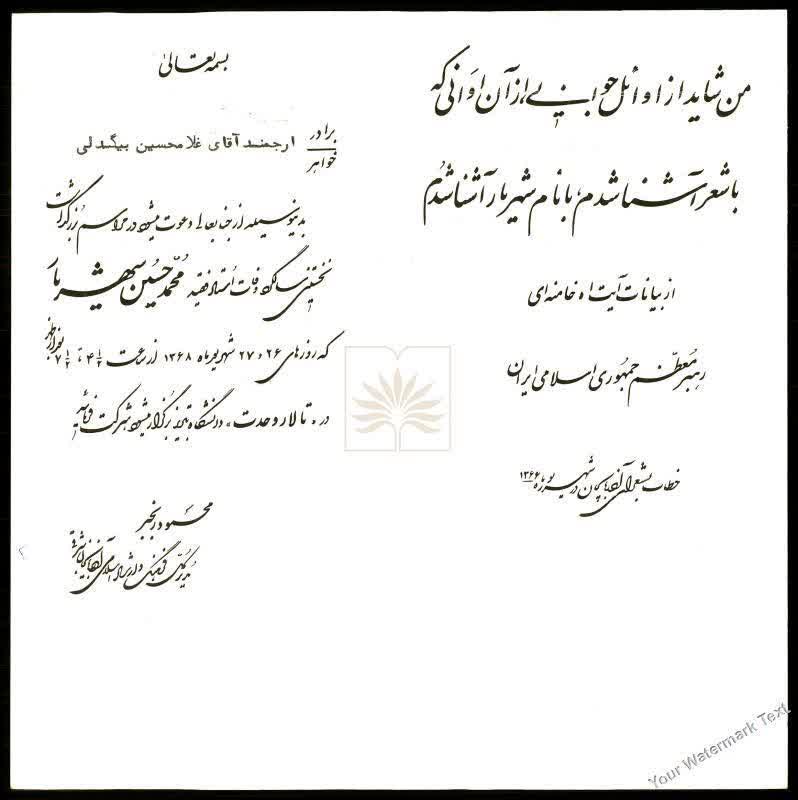 من شاید از اوائل جوانیِ، از آن اوانی که
با شعر آشنا شدم، با نام شهریار آشنا شدم
از بیانات آیت اله خامنه‌ای
رهبر معظّم جمهوری اسلامی ایران
خطاب بشعرای آذربایجان در شهریورماه ۱۳۶۶
بسمه تعالیٰ
برادر
خواهر
ارجمند آقای غلامحسین بیگدلی
بدینوسیله از جنابعالی دعوت میشود در مراسم بزرگداشت
نخستین سالگرد وفات استاد فقید محمّد حسین شهریار
که روزهای ۲۶ و ۲۷ شهریورماه ۱۳۶۸ از ساعت ۴ ۱/۲ تا ۷ ۱/۲ بعدازظهر
در «تالار وحدت» دانشگاه تبریز برگزار میشود شرکت فرمائید
محمود رنجبر
مدیر کل فرهنگ و ارشاد اسلامی آذربایجان شرقی
Your Watermark Text